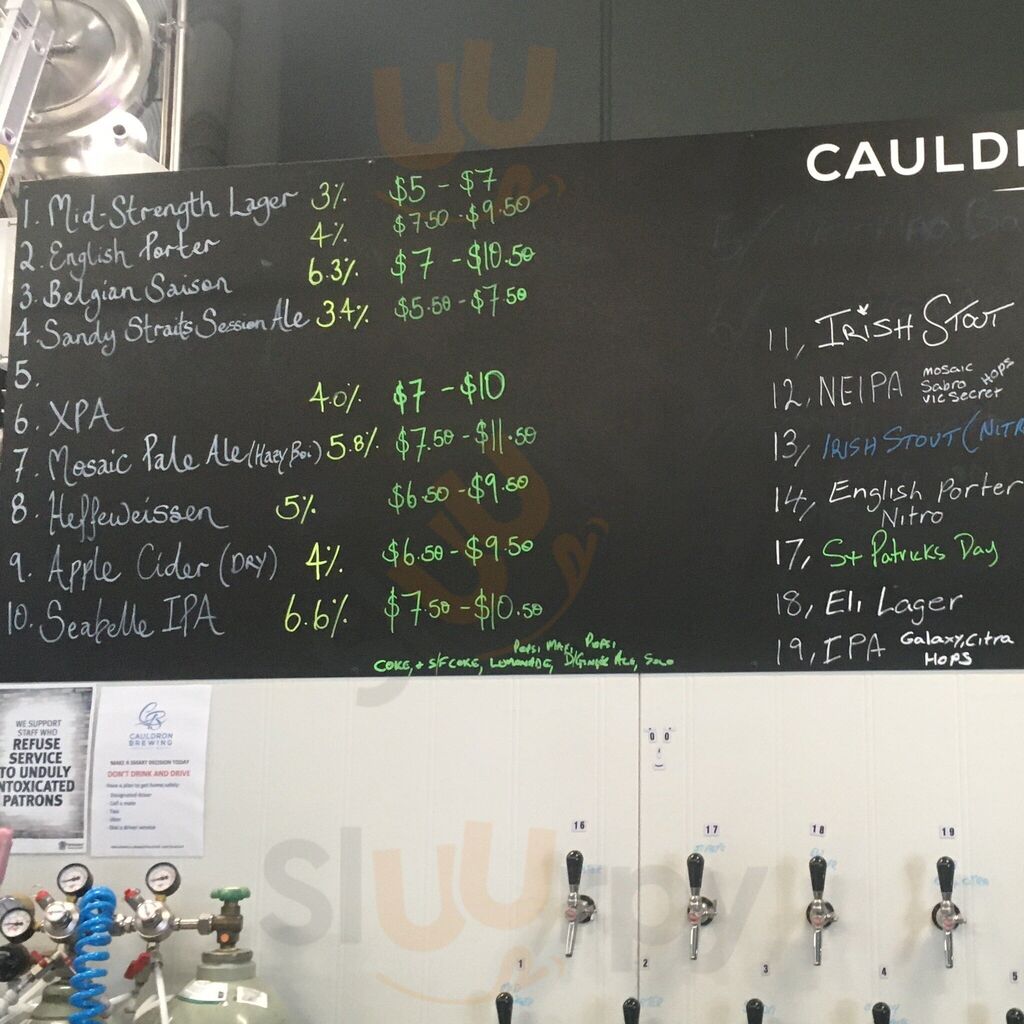 CAULD
1. Mid-Strength Lager 3% $5 - $7
2. English Porter 4% $7.50 - $9.50
3. Belgian Saison 6.3% $7 - $10.50
4 Sandy Straits Session Ale 3.4% $5.50 - $7.50
5.
6. XPA 4.0% $7 - $10
7. Mosaic Pale Ale (Hazy Boi) 5.8% $7.50 - $11.50
8. Heffeweissen 5% $6.50 - $9.50
9. Apple Cider (DRY) 4% $6.50 - $9.50
10. Seabelle IPA 6.6% $7.50 - $10.50
Pepsi Max, Pepsi
COKE, + S/F COKE, LEMONADE, D/Ginger Ale, Solo
11, IRISH STOUT
12, NEIPA Mosaic Sabro Vic Secret HOPS
13, IRISH STOUT (NITR
14, English Porter
Nitro
17, St Patricks Day
18, Eli Lager
19, IPA Galaxy, Citra
HOPS
WE SUPPORT
STAFF WHO
REFUSE
SERVICE
TO UNDULY
NTOXICATED
PATRONS
CB
CAULDRON
BREWING
MAKE A SMART DECISION TODAY
DON'T DRINK AND DRIVE
Have a plan to get home safely:
Designated driver
Call a mate
Taxi
Uber
Dial a driver service
0 0
16 17 18 19
1 2 3 4 5
Sluurpy